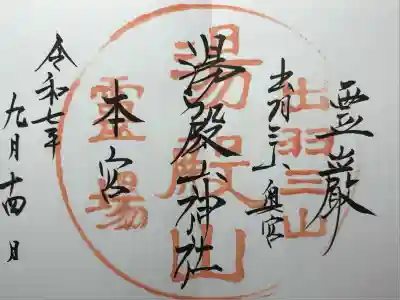 霊巌
出羽三山奥宮
湯殿山神社
本宮
令和七年
九月十四日
出羽三山
湯殿山
霊場